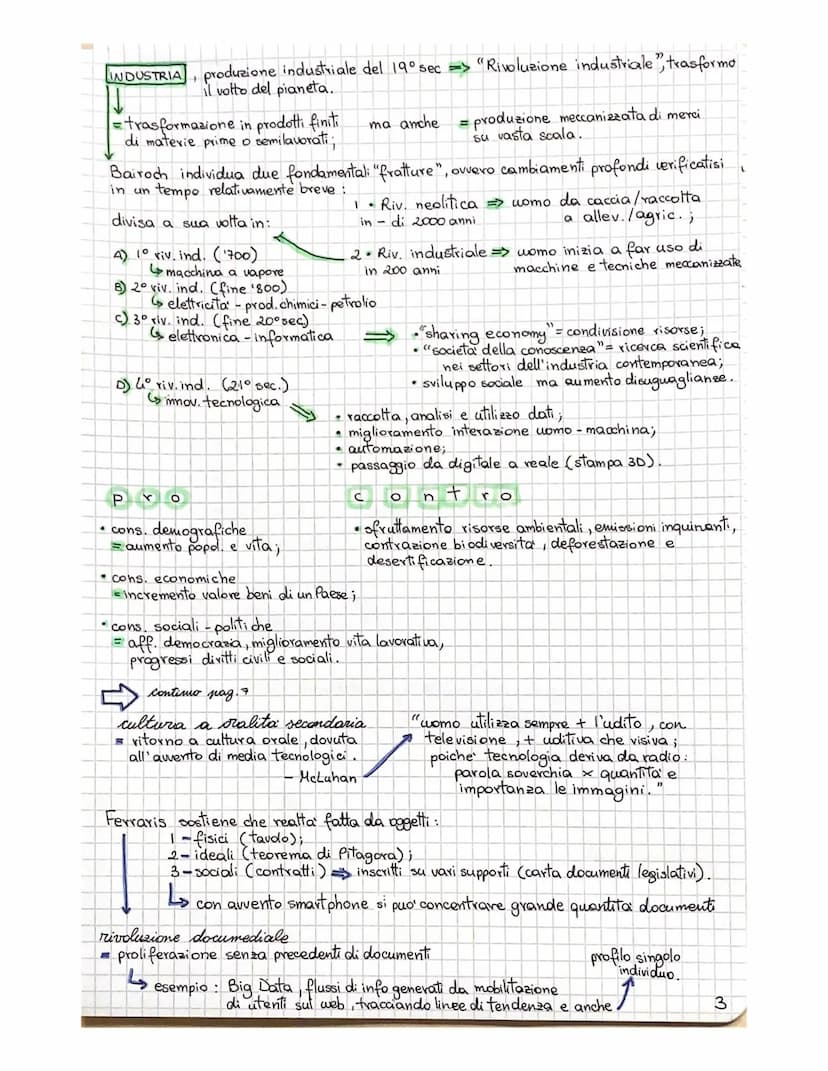 INDUSTRIA, produzione industriale del 19° sec ⇒ "Rivoluzione industriale", trasformò
il volto del pianeta.
= trasformazione in prodotti finiti ma anche = produzione meccanizzata di merci
di materie prime o semilavorati; su vasta scala.
Bairoch individua due fondamentali "fratture", ovvero cambiamenti profondi verificatisi
in un tempo relativamente breve:
1 • Riv. neolitica ⇒ uomo da caccia/raccolta
in - di 2000 anni a allev./agric.;
divisa a sua volta in:
2 • Riv. industriale ⇒ uomo inizia a far uso di
in 200 anni macchine e tecniche meccanizzate
A) 1° riv. ind. ('700)
↳ macchina a vapore
B) 2° riv. ind. (fine '800)
↳ elettricità - prod. chimici - petrolio
C) 3° riv. ind. (fine 20° sec)
↳ elettronica - informatica ⇒ • "sharing economy" = condivisione risorse;
• "società della conoscenza" = ricerca scientifica
nei settori dell'industria contemporanea;
• sviluppo sociale ma aumento disuguaglianze.
D) 4° riv. ind. (21° sec.)
↳ innov. tecnologica
• raccolta, analisi e utilizzo dati;
• miglioramento interazione uomo - macchina;
• automazione;
• passaggio da digitale a reale (stampa 3D).
pro contro
• cons. demografiche
= aumento popol. e vita;
• sfruttamento risorse ambientali, emissioni inquinanti,
contrazione biodiversità, deforestazione e
desertificazione.
• cons. economiche
= incremento valore beni di un Paese;
• cons. sociali - politiche
= aff. democrazia, miglioramento vita lavorativa,
progressi diritti civili e sociali.
⇒ continuo pag. 7
cultura a oralità secondaria
= ritorno a cultura orale, dovuta
all'avvento di media tecnologici.
- McLuhan
"uomo utilizza sempre + l'udito, con
televisione, + uditiva che visiva;
poiché tecnologia deriva da radio:
parola soverchia x quantità e
importanza le immagini."
Ferraris sostiene che realtà fatta da oggetti:
1 - fisici (tavolo);
2 - ideali (teorema di Pitagora);
3 - sociali (contratti) ⇒ inscritti su vari supporti (carta documenti legislativi).
↳ con avvento smartphone si può concentrare grande quantità documenti
rivoluzione documediale
= proliferazione senza precedenti di documenti
↳ esempio: Big Data, flussi di info generati da mobilitazione
di utenti sul web, tracciando linee di tendenza e anche
profilo singolo
individuo.
3